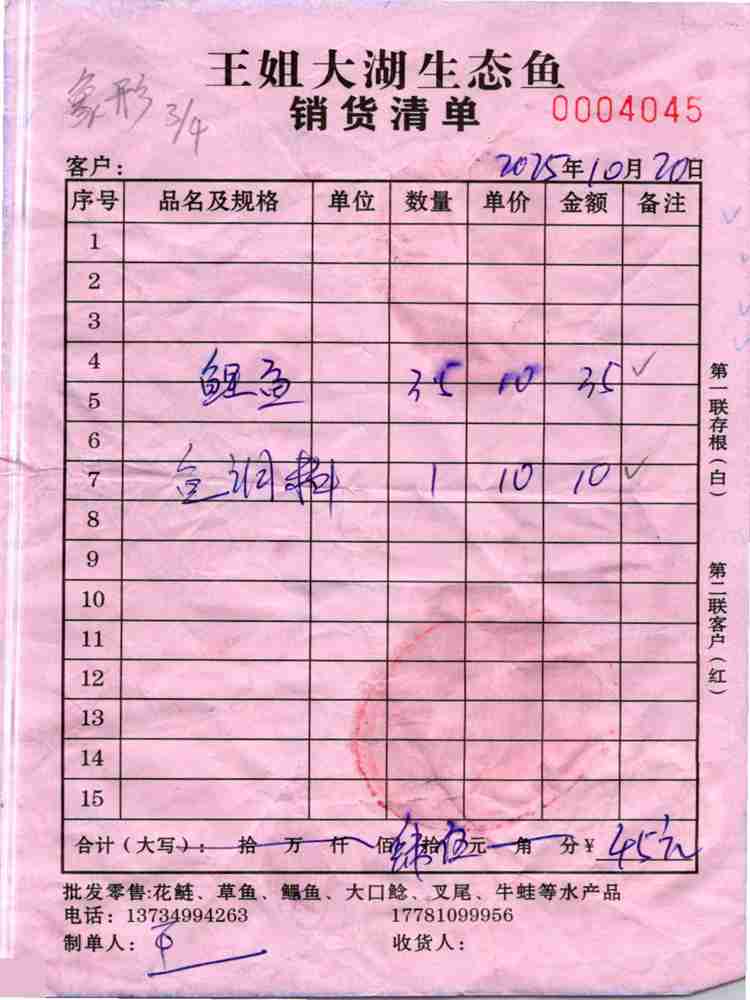 王姐大湖生态鱼
象形 3/4
销货清单 0004045
客户： 2025年10月20日
序号 品名及规格 单位 数量 单价 金额 备注
1
2
3
4 鲤鱼 3.5 10 35 ✓
5
6
7 鱼调料 1 10 10 ✓
8
9
10
11
12
13
14
15
合计（大写）： 拾 万 仟 佰 肆拾伍元 角 分￥ 45元
批发零售:花鲢、草鱼、鳊鱼、大口鲶、叉尾、牛蛙等水产品
电话：13734994263 17781099956
制单人： 收货人：
第一联存根（白）
第二联客户（红）